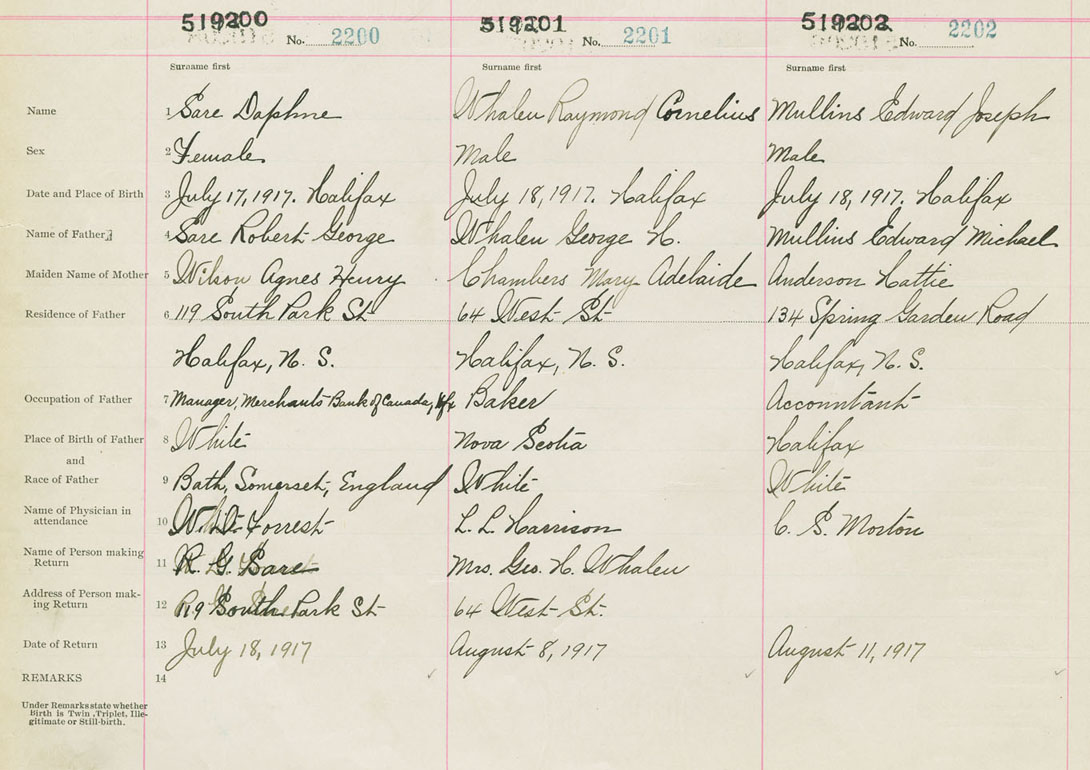 519200 519201 519202
No. 2200 No. 2201 No. 2202
Surname first Surname first Surname first
Name 1 Sare Daphne Whalen Raymond Cornelius Mullins Edward Joseph
Sex 2 Female Male Male
Date and Place of Birth 3 July 17, 1917. Halifax July 18, 1917. Halifax July 18, 1917. Halifax
Name of Father 4 Sare Robert George Whalen George H. Mullins Edward Michael
Maiden Name of Mother 5 Wilson Agnes Henry Chambers Mary Adelaide Anderson Hattie
Residence of Father 6 119 South Park St 64 West St 134 Spring Garden Road
Halifax, N. S. Halifax, N. S. Halifax, N. S.
Occupation of Father 7 Manager, Merchants Bank of Canada, Hfx Baker Accountant
Place of Birth of Father 8 White Nova Scotia Halifax
and
Race of Father 9 Bath, Somerset, England White White
Name of Physician in
attendance 10 W. D. Forrest L. L. Harrison C. S. Morton
Name of Person making
Return 11 R. G. Sare Mrs. Geo. H. Whalen
Address of Person mak-
ing Return 12 119 South Park St 64 West St.
Date of Return 13 July 18, 1917 August 8, 1917 August 11, 1917
REMARKS 14
Under Remarks state whether
Birth is Twin, Triplet, Ille-
gitimate or Still-birth.